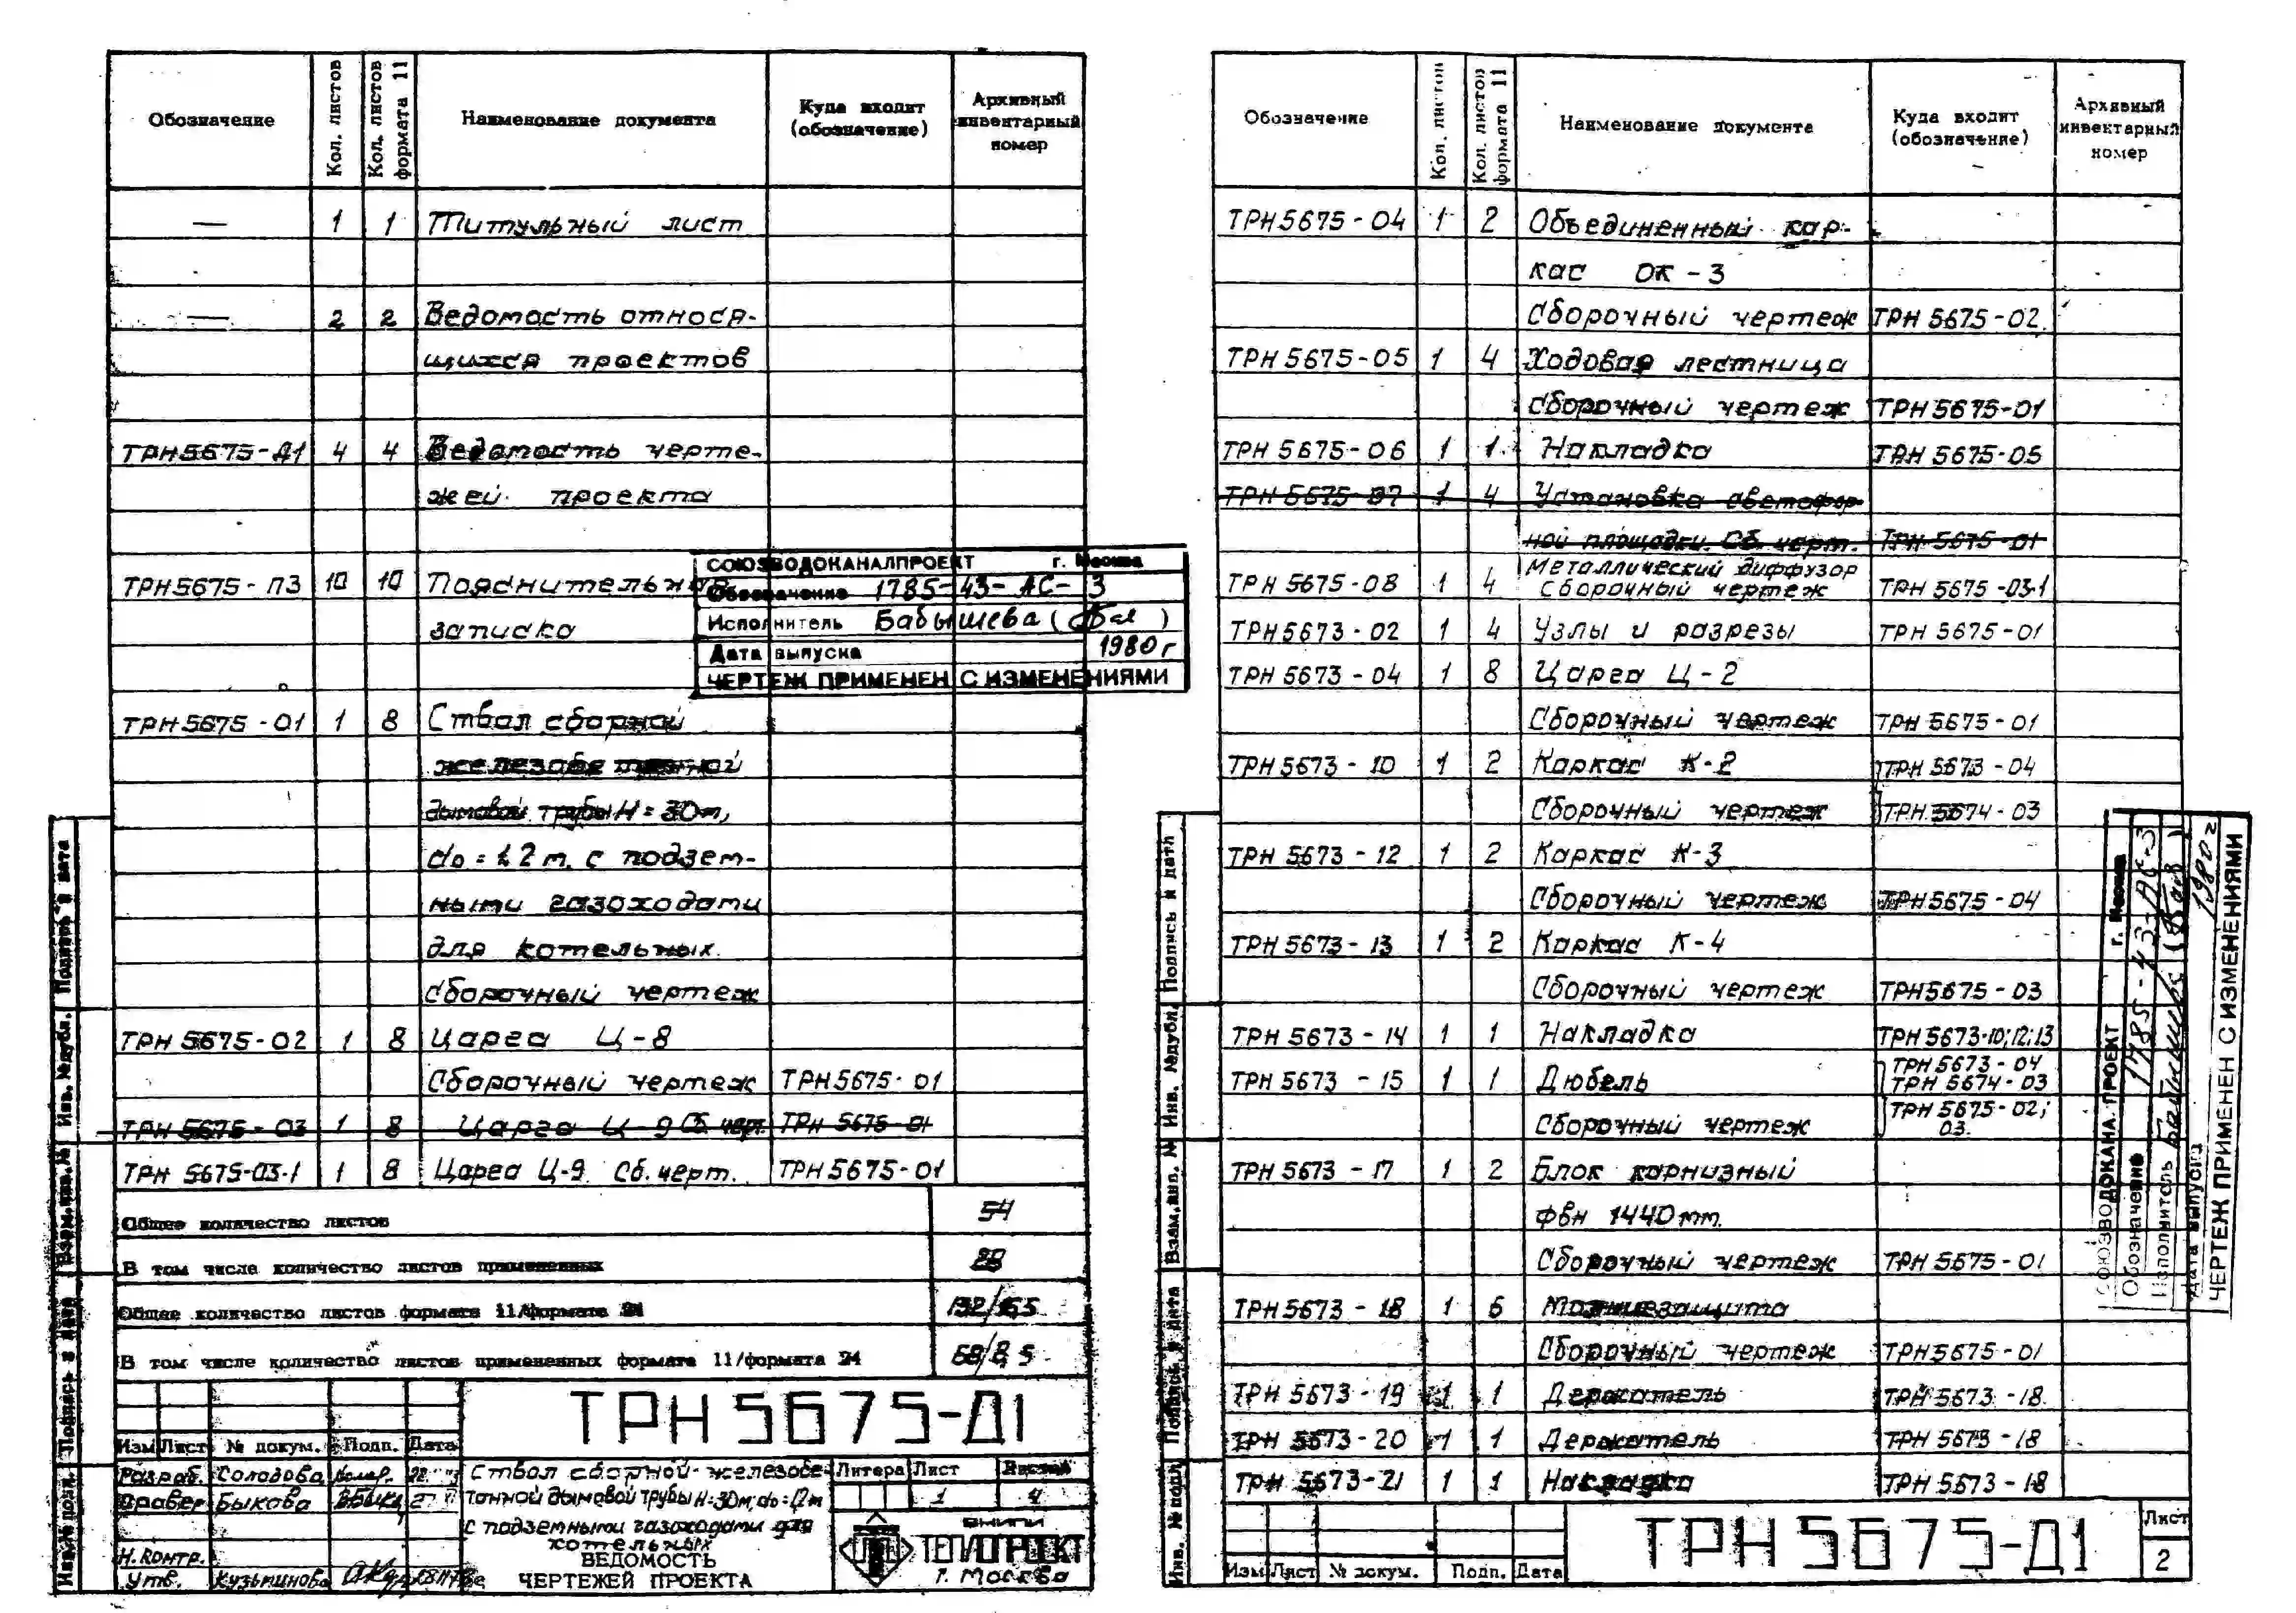 Обозначение Кол. листов Кол. листов формата 11 Наименование документа Куда входит (обозначение) Архивный инвентарный номер
— 1 1 Титульный лист
— 2 2 Ведомость относя-
щихся проектов
ТРН5675-Д1 4 4 Ведомость черте-
жей проекта
ТРН5675-ПЗ 10 10 Пояснительная
записка
СОЮЗВОДОКАНАЛПРОЕКТ г. Москва
Обозначение 1785-43-АС-3
Исполнитель Бабышева
Дата выпуска 1980г
ЧЕРТЕЖ ПРИМЕНЕН С ИЗМЕНЕНИЯМИ
ТРН5675-01 1 8 Ствол сборной
железобетонной
дымовой трубы Н=30м,
do=1,2м. с подзем-
ными газоходами
для котельных.
Сборочный чертеж
ТРН 5675-02 1 8 Царга Ц-8
Сборочный чертеж ТРН5675-01
ТРН 5675-03 1 8 Царга Ц-9 Сб. черт. ТРН 5675-01
ТРН 5675-03-1 1 8 Царга Ц-9. Сб. черт. ТРН5675-01
Общее количество листов 54
В том числе количество листов примененных 28
Общее количество листов формата 11/формата 24
В том числе количество листов примененных формата 11/формата 24 68/8,5
ТРН 5675-Д1
Изм Лист № докум. Подп. Дата
Разраб. Солодова
Провер Быкова
Н.контр.
Утв. Кузьминова
Ствол сборной железобе-
тонной дымовой трубы Н=30м; do=1,2м
с подземными газоходами для
котельных
ВЕДОМОСТЬ
ЧЕРТЕЖЕЙ ПРОЕКТА
Литера Лист Листов
1 4
ВНИПИ
ТЕПЛОПРОЕКТ
г. Москва
Инв. № подл. Подпись и дата Взам. инв. № Инв. № дубл. Подпись и дата
Обозначение Кол. листов Кол. листов формата 11 Наименование документа Куда входит (обозначение) Архивный инвентарный номер
ТРН5675-04 1 2 Объединенный кар-
кас ОК-3
Сборочный чертеж ТРН 5675-02.
ТРН 5675-05 1 4 Ходовая лестница
Сборочный чертеж ТРН 5675-01
ТРН 5675-06 1 1 Накладка ТРН 5675-05
ТРН 5675-07 1 4 Установка светофор-
ной площадки. Сб. черт. ТРН 5675-01
ТРН 5675-08 1 4 Металлический диффузор
Сборочный чертеж ТРН 5675-03-1
ТРН5673-02 1 4 Узлы и разрезы ТРН 5675-01
ТРН 5673-04 1 8 Царга Ц-2
Сборочный чертеж ТРН 5675-01
ТРН 5673-10 1 2 Каркас К-2 ТРН 5673-04
Сборочный чертеж ТРН 5674-03
ТРН 5673-12 1 2 Каркас К-3
Сборочный чертеж ТРН5675-04
ТРН 5673-13 1 2 Каркас К-4
Сборочный чертеж ТРН5675-03
ТРН 5673-14 1 1 Накладка ТРН 5673-10;12;13
ТРН 5673-15 1 1 Дюбель ТРН 5673-04
ТРН 5674-03
Сборочный чертеж ТРН 5675-02;
03.
ТРН 5673-17 1 2 Блок карнизный
фвн 1440мм.
Сборочный чертеж ТРН 5675-01
ТРН 5673-18 1 6 Молниезащита
Сборочный чертеж ТРН5675-01
ТРН 5673-19 1 1 Держатель ТРН 5673-18.
ТРН 5673-20 1 1 Держатель ТРН 5673-18
ТРН 5673-21 1 1 Накладка ТРН 5673-18
СОЮЗВОДОКАНАЛПРОЕКТ г. Москва
Обозначение 1785-43-АС-3
Исполнитель Бабышева
Дата выпуска 1980г
ЧЕРТЕЖ ПРИМЕНЕН С ИЗМЕНЕНИЯМИ
Инв. № подл. Подпись и дата Взам. инв. № Инв. № дубл. Подпись и дата
Изм Лист № докум. Подп. Дата
ТРН 5675-Д1
Лист
2